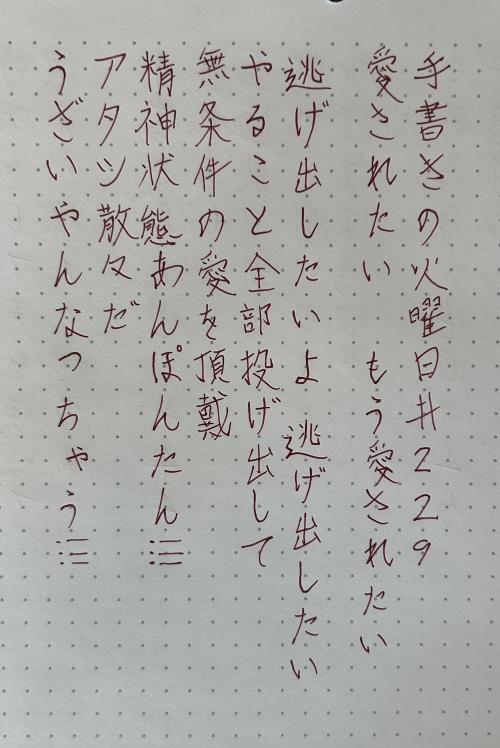 手書きの火曜日#229
愛されたい　もう愛されたい
逃げ出したいよ　逃げ出したい
やること全部投げ出して
無条件の愛を頂戴
精神状態あんぽんたん:三
アタシ散々だ
うざいやんなっちゃう:三